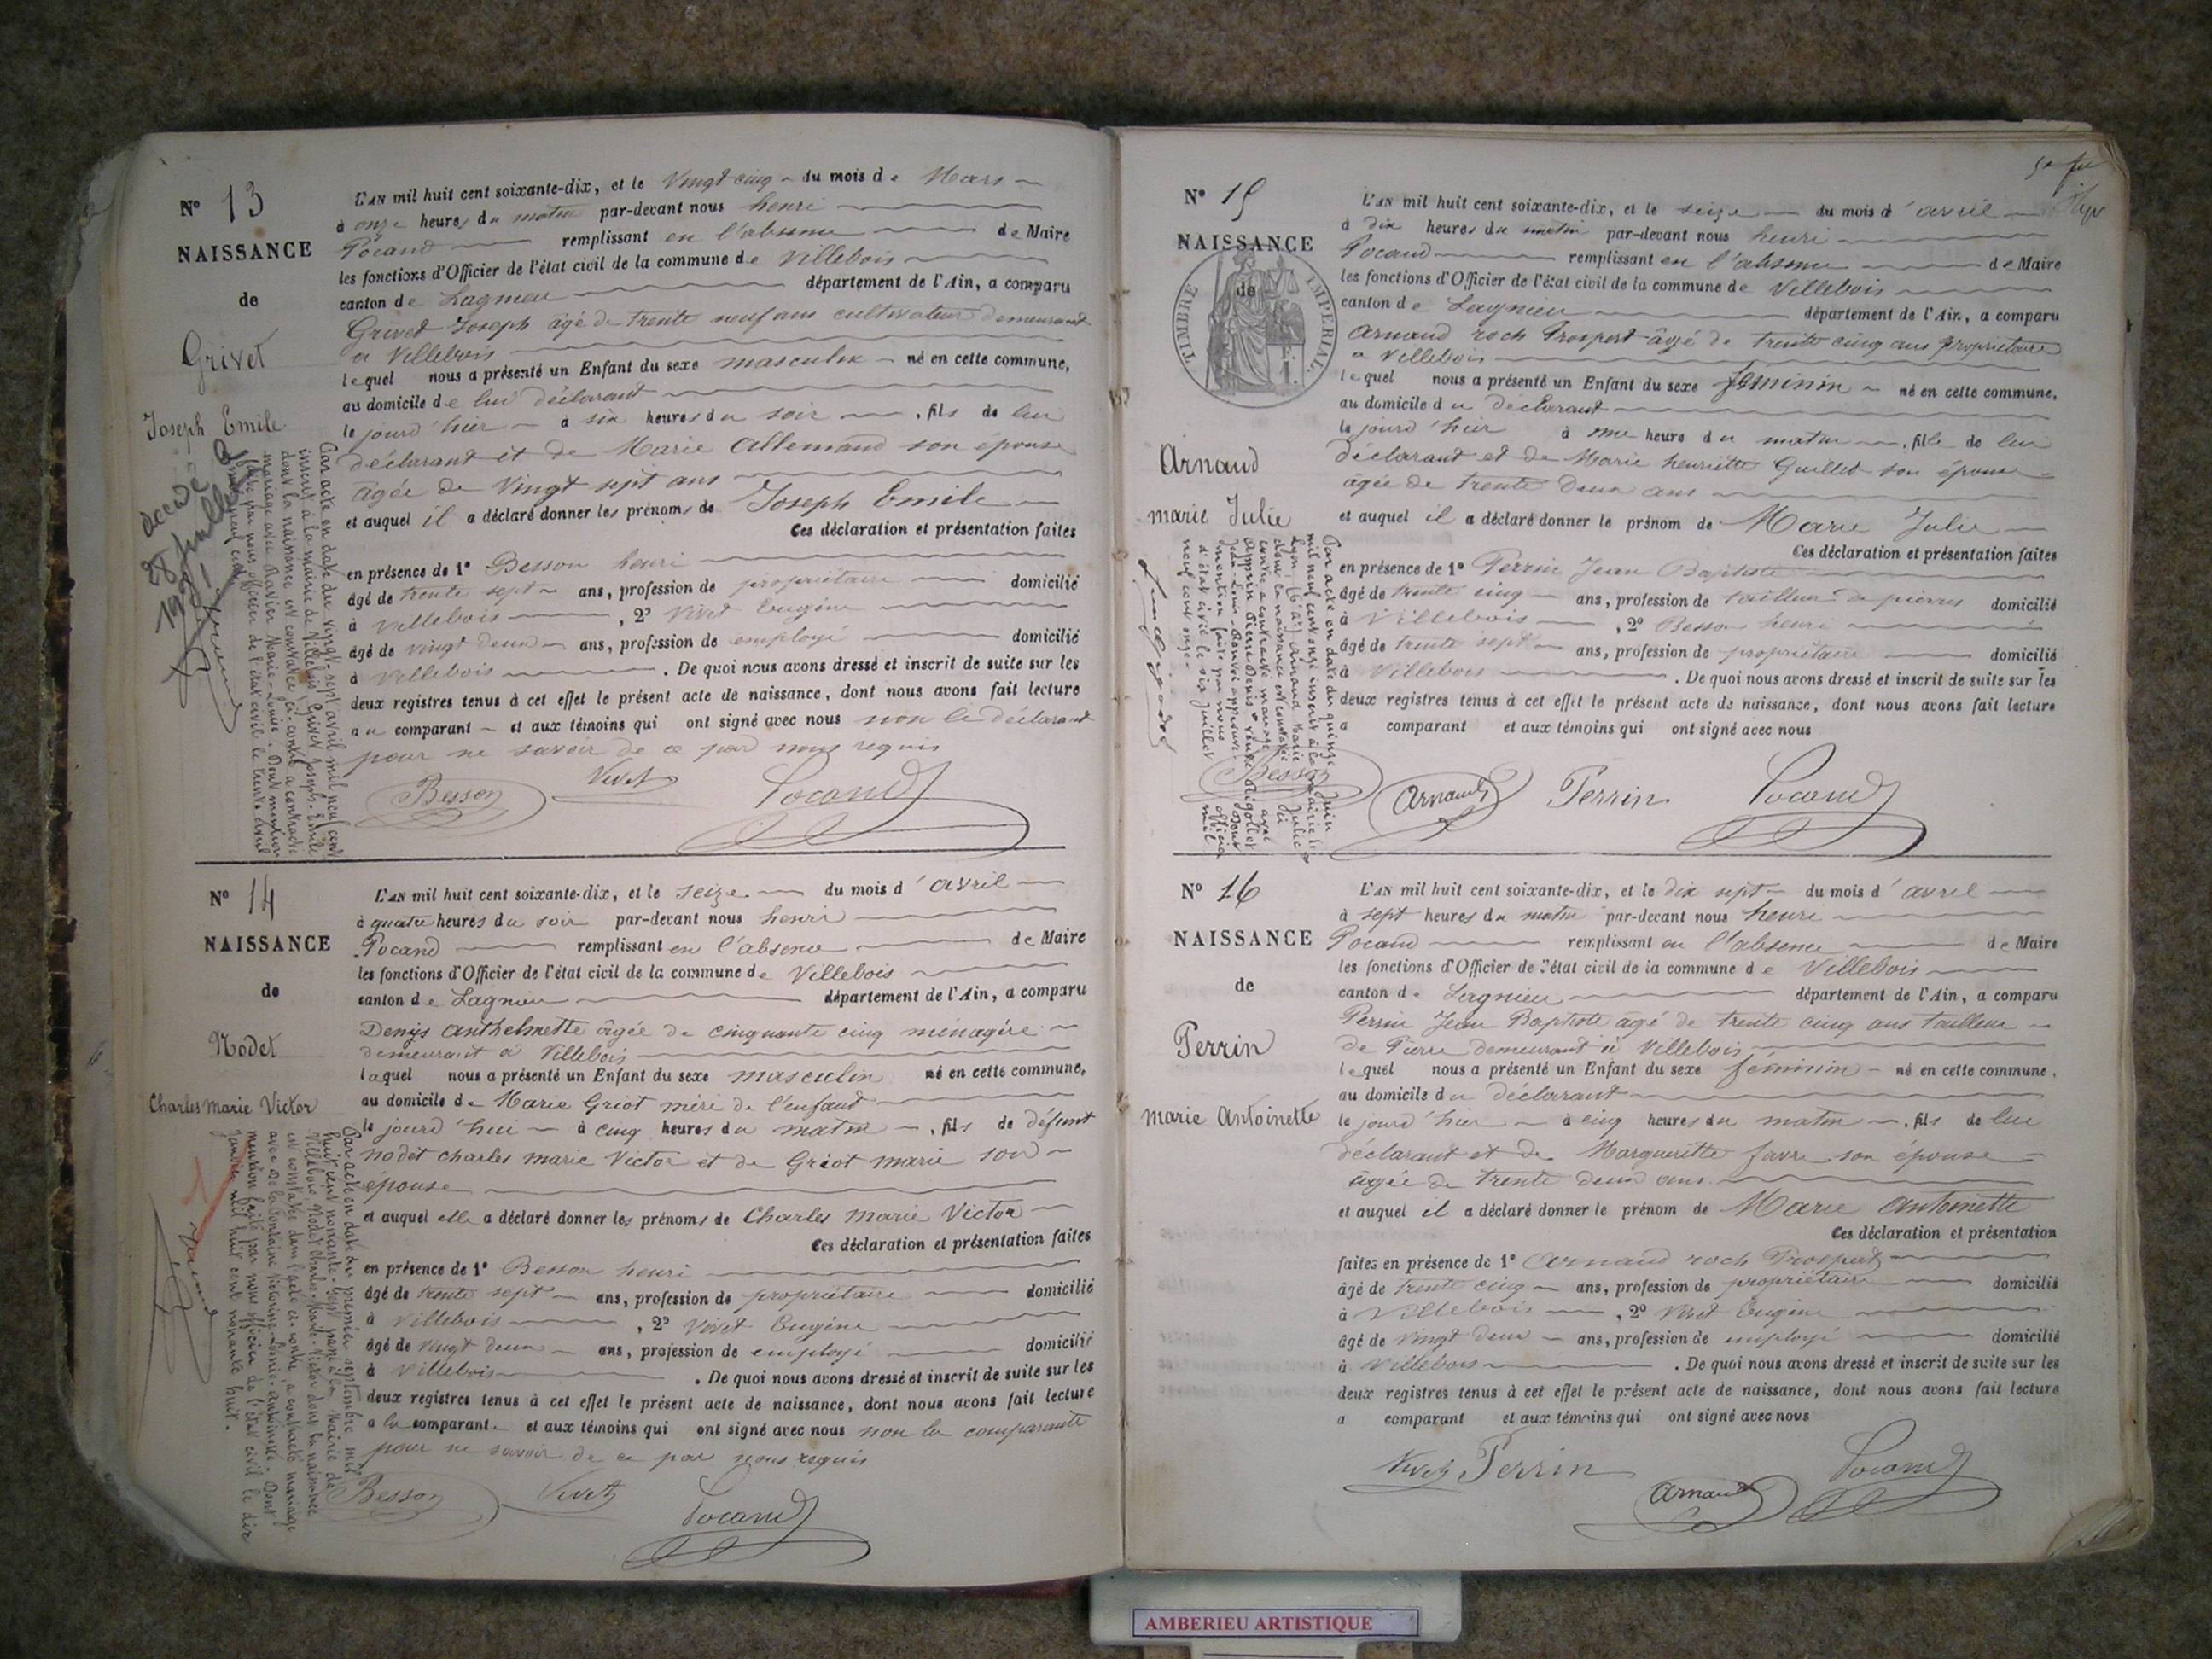 N° 13
NAISSANCE
de
Grivet
Joseph Emile
L'AN mil huit cent soixante-dix, et le Vingt cinq du mois de Mars
à onze heures du matin par-devant nous henri
Pocand remplissant en l'absence de Maire
les fonctions d'Officier de l'état civil de la commune de Villebois
canton de Lagnieu département de l'Ain, a comparu
Grivet Joseph âgé de trente neuf ans cultivateur demeurant
a Villebois
lequel nous a présenté un Enfant du sexe masculin né en cette commune,
au domicile de lui déclarant
le jourd'hier à six heures du soir, fils de lui
déclarant et de Marie Allemand son épouse
âgée de Vingt sept ans
et auquel il a déclaré donner les prénoms de Joseph Emile
Ces déclaration et présentation faites
en présence de 1° Besson henri
âgé de trente sept ans, profession de propriétaire domicilié
à Villebois, 2° Vivet Eugène
âgé de vingt deux ans, profession de employé domicilié
à Villebois. De quoi nous avons dressé et inscrit de suite sur les
deux registres tenus à cet effet le présent acte de naissance, dont nous avons fait lecture
au comparant et aux témoins qui ont signé avec nous non le déclarant
pour ne savoir de ce par nous requis
Besson Vivet Pocand
décédé
28 juillet
Par acte en date du vingt-sept avril mil neuf cent
inscrit à la mairie de Villebois Grivet Joseph-Emile
dont la naissance est constatée ci-contre a contracté
mariage avec Ravier Marie-Louise. Dont mention
faite par nous officier de l'état civil le trente avril
N° 14
NAISSANCE
de
Nodet
Charles marie Victor
L'AN mil huit cent soixante-dix, et le seize du mois d'avril
à quatre heures du soir par-devant nous henri
Pocand remplissant en l'absence de Maire
les fonctions d'Officier de l'état civil de la commune de Villebois
canton de Lagnieu département de l'Ain, a comparu
Denys anthelmette âgée de cinquante cinq ménagère
demeurant à Villebois
laquel nous a présenté un Enfant du sexe masculin né en cette commune,
au domicile de Marie Griot mère de l'enfant
le jourd'hui à cinq heures du matin, fils de défunt
nodet charles marie Victor et de Griot marie son
épouse
et auquel elle a déclaré donner les prénoms de Charles Marie Victor
Ces déclaration et présentation faites
en présence de 1° Besson henri
âgé de trente sept ans, profession de propriétaire domicilié
à Villebois, 2° Vivet Eugène
âgé de vingt deux ans, profession de employé domicilié
à Villebois. De quoi nous avons dressé et inscrit de suite sur les
deux registres tenus à cet effet le présent acte de naissance, dont nous avons fait lecture
a la comparante et aux témoins qui ont signé avec nous non la comparante
pour ne savoir de ce par nous requis
Besson Vivet Pocand
Par acte en date du premier septembre mil
huit cent nonante-sept passé à la Mairie de
Villebois Nodet Charles-Marie-Victor dont la naissance
est constatée dans l'acte ci-contre, a contracté mariage
avec De la Fontaine Dont
mention faite par nous officier de l'état civil le dix
janvier mil huit cent nonante huit.
N° 15
NAISSANCE
de
TIMBRE IMPERIAL
Arnaud
marie Julie
L'AN mil huit cent soixante-dix, et le seize du mois d'avril
à dix heures du matin par-devant nous henri
Pocand remplissant en l'absence de Maire
les fonctions d'Officier de l'état civil de la commune de Villebois
canton de Lagnieu département de l'Ain, a comparu
Arnaud roch Prospert âgé de trente cinq ans propriétaire
a Villebois
lequel nous a présenté un Enfant du sexe féminin né en cette commune,
au domicile du déclarant
le jourd'hier à une heure du matin, fille de lui
déclarant et de Marie henriette Guillet son épouse
âgée de trente deux ans
et auquel il a déclaré donner le prénom de Marie Julie
Ces déclaration et présentation faites
en présence de 1° Perrin Jean Baptiste
âgé de trente cinq ans, profession de tailleur de pierres domicilié
à Villebois, 2° Besson henri
âgé de trente sept ans, profession de propriétaire domicilié
à Villebois. De quoi nous avons dressé et inscrit de suite sur les
deux registres tenus à cet effet le présent acte de naissance, dont nous avons fait lecture
a comparant et aux témoins qui ont signé avec nous
Besson Arnaud Perrin Pocand
Par acte en date du quinze Juin
mil neuf cent onze inscrit à la mairie de
Lyon, Arnaud Marie Julie
dont la naissance est constatée ci
contre a contracté mariage avec
dont
mention faite par nous officier
d'état civil le six Juillet mil
neuf cent onze.
N° 16
NAISSANCE
de
Perrin
marie Antoinette
L'AN mil huit cent soixante-dix, et le dix sept du mois d'avril
à sept heures du matin par-devant nous henri
Pocand remplissant en l'absence de Maire
les fonctions d'Officier de l'état civil de la commune de Villebois
canton de Lagnieu département de l'Ain, a comparu
Perrin Jean Baptiste âgé de trente cinq ans tailleur
de Pierre demeurant à Villebois
lequel nous a présenté un Enfant du sexe féminin né en cette commune,
au domicile du déclarant
le jourd'hier à cinq heures du matin, fils de lui
déclarant et de Margueritte favre son épouse
âgée de trente deux ans
et auquel il a déclaré donner le prénom de Marie Antoinette
Ces déclaration et présentation
faites en présence de 1° Arnaud roch Prospert
âgé de trente cinq ans, profession de propriétaire domicilié
à Villebois, 2° Vivet Eugène
âgé de vingt deux ans, profession de employé domicilié
à Villebois. De quoi nous avons dressé et inscrit de suite sur les
deux registres tenus à cet effet le présent acte de naissance, dont nous avons fait lecture
a comparant et aux témoins qui ont signé avec nous
Vivet Perrin Arnaud Pocand
AMBERIEU ARTISTIQUE